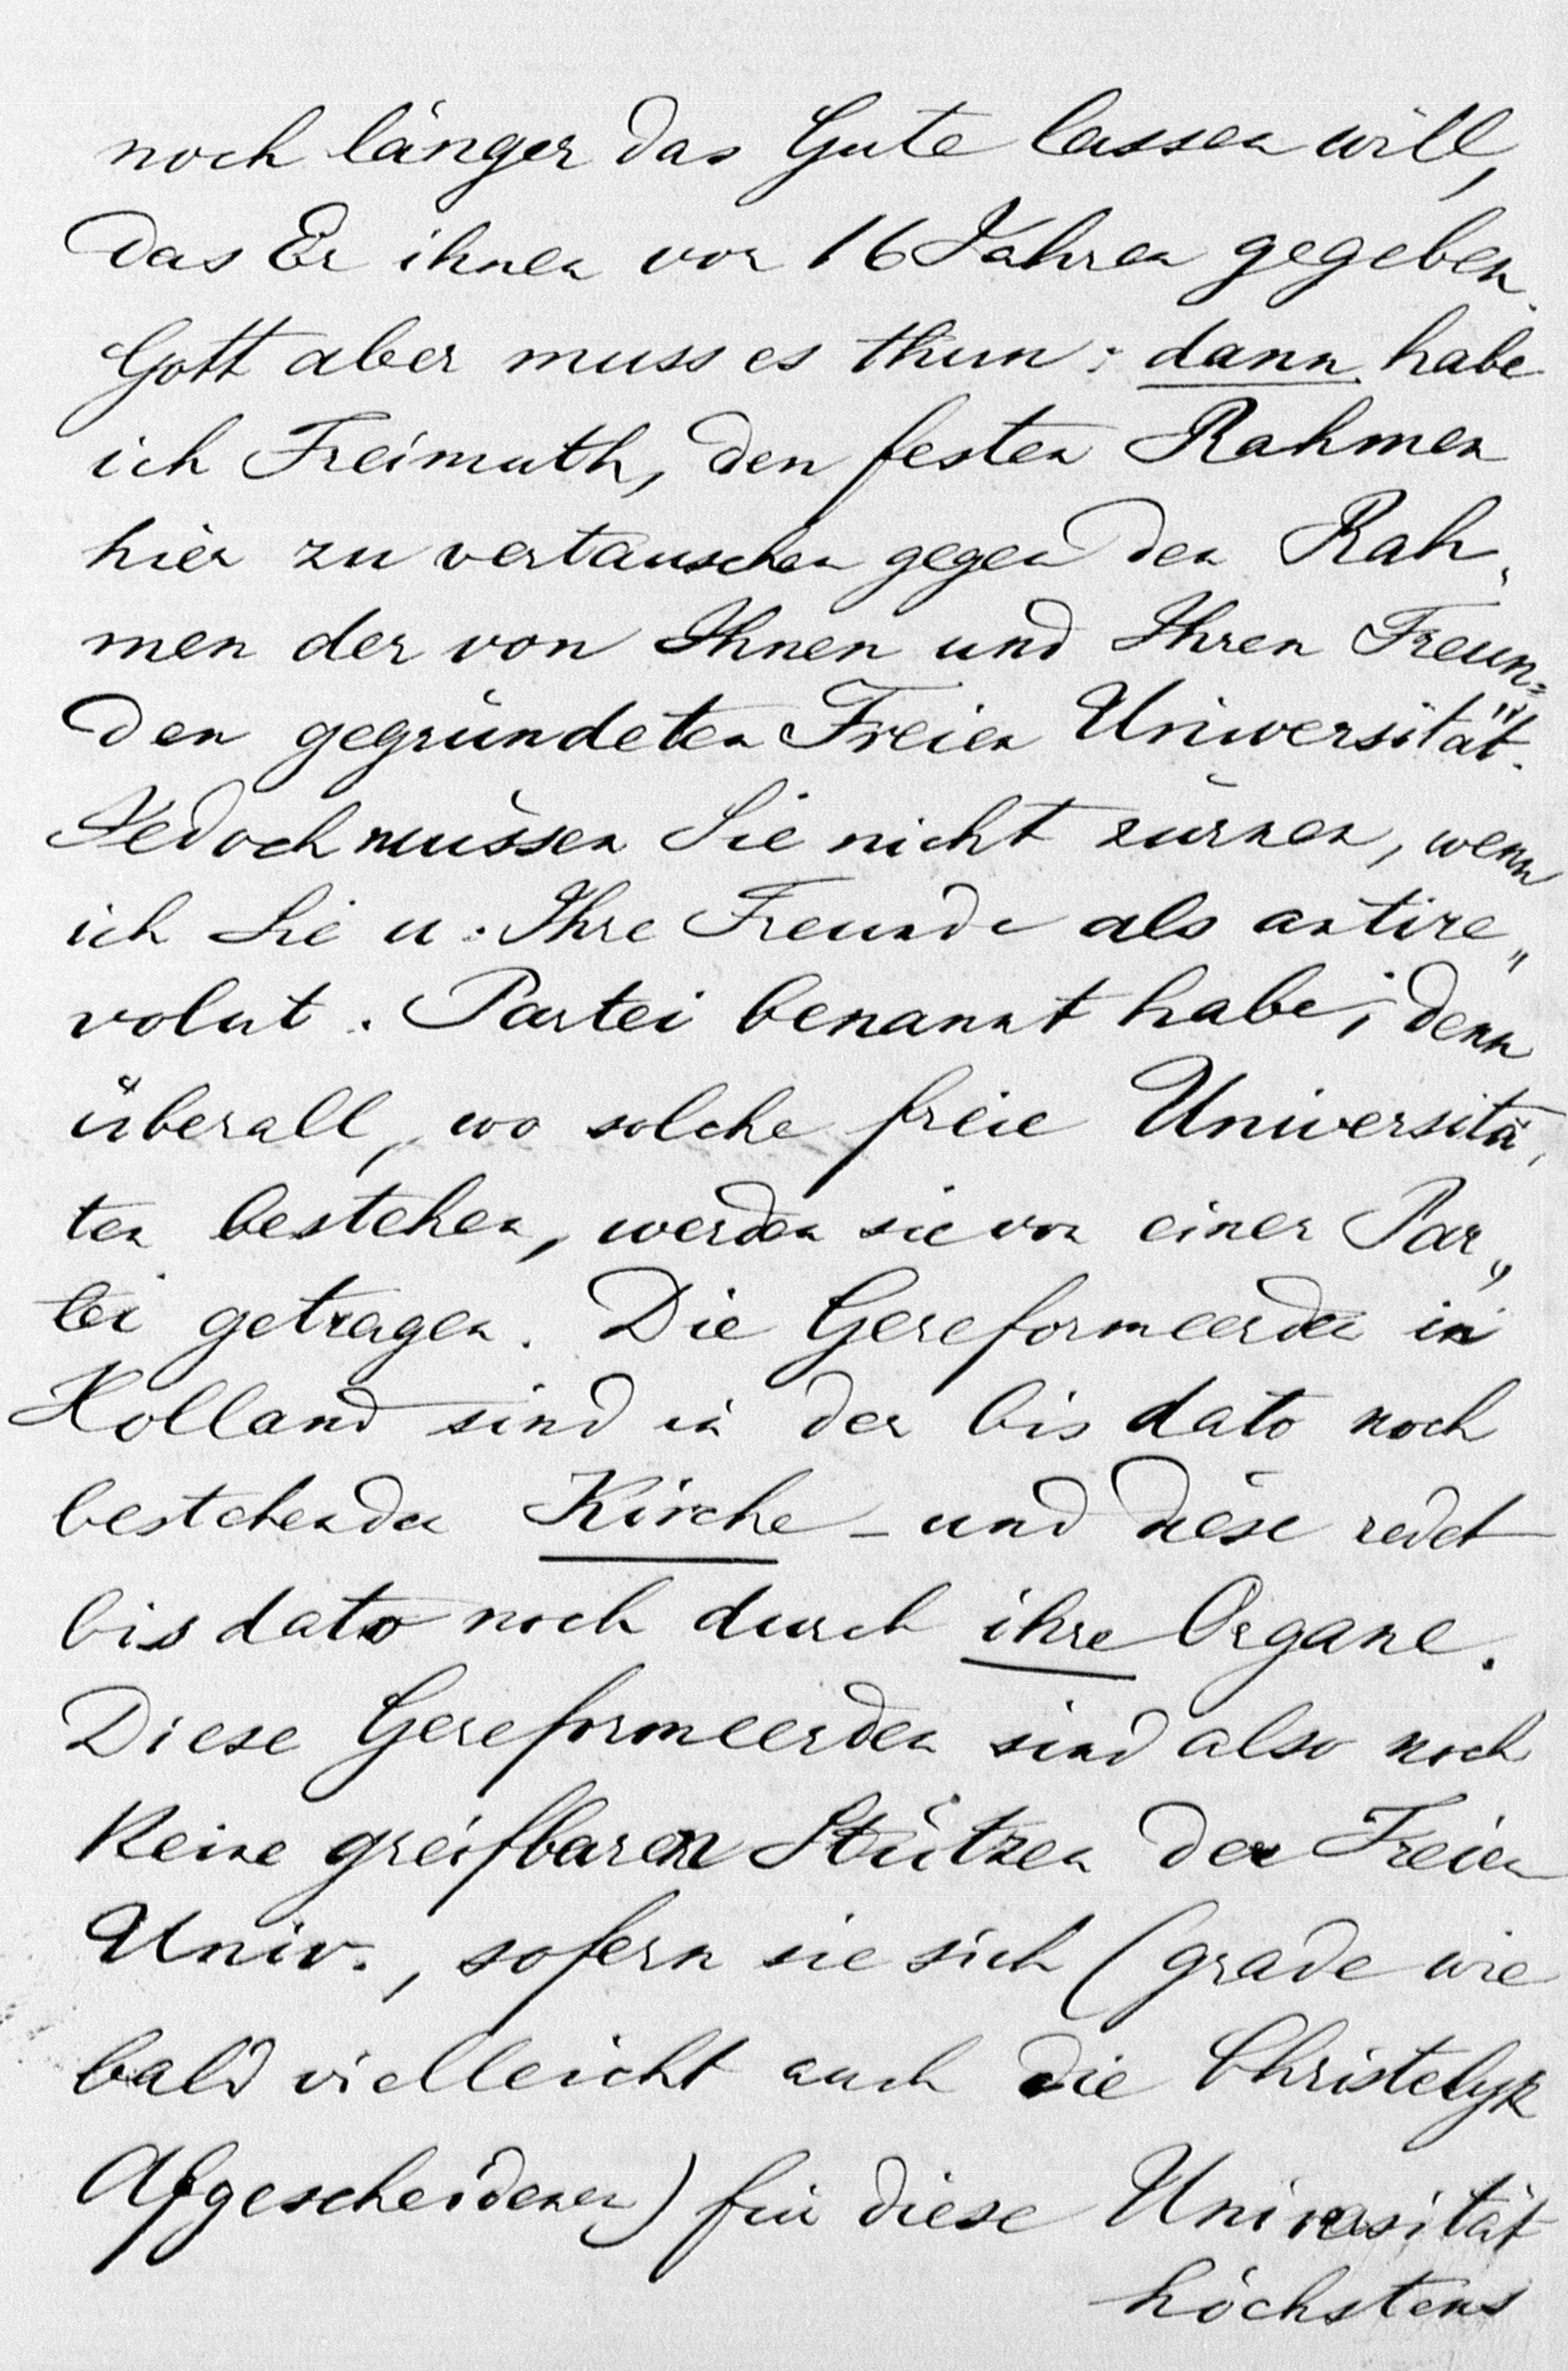 noch länger das Gute lassen will,
das Er ihnen vor 16 Jahren gegeben.
Gott aber muss es thun: dann habe
ich Freimuth, den festen Rahmen
hier zu vertauschen gegen den Rah-
men der von Ihnen und Ihren Freun=
den gegründeten Freien Universität.
Jedoch müssen Sie nicht zürnen, wenn
ich Sie u. Ihre Freunde als antire„
volut. Partei benannt habe; denn
überall, wo solche freie Universitä-
ten bestehen, werden sie von einer Par„
tei getragen. Die Gereformeerden in
Holland sind in der bis dato noch
bestehenden Kirche – und diese redet
bis dato noch durch ihre Organe.
Diese Gereformeerden sind also noch
keine greifbaren Stützen der Freien
Univ., sofern sie sich (grade wie
bald vielleicht auch die Christelyk
Afgescheidenen) für diese Universität
höchstens